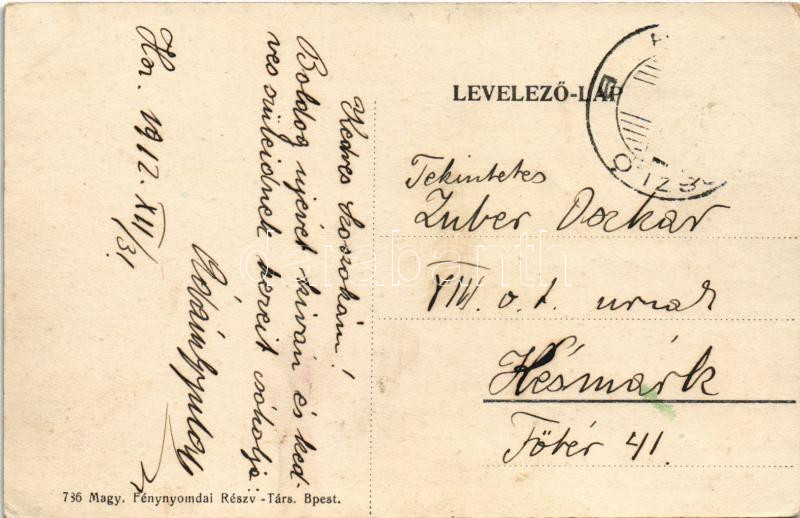 Kedves Koszokám!
Boldog ujévet kíván és ked-
ves szüleidnek kezeit csókolja
Hor. 1912. XII/31.
LEVELEZŐ-LAP
Tekintetes
Zuber Oszkár
VIII. o. t. urnak
Késmárk
Főtér 41.
736 Magy. Fénynyomdai Részv -Társ. Bpest.
darabanth